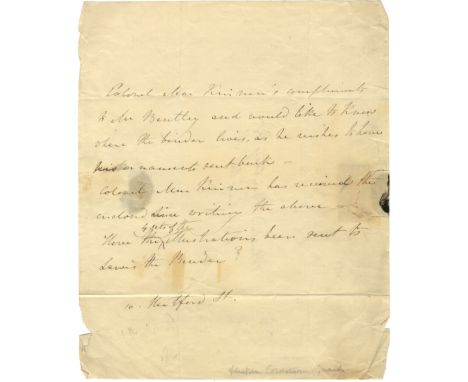 Colonel Mac Kinnon's compliments
to Mr Bentley and would like to know
where the binder lives, as he wishes to have
manuscrpt sent back –
Colonel Mac Kinnon has received the
enclosed since writing the above –
4 sets of the
Have the Illustrations been sent to
Lewis the Binder?
10. Hertford St.